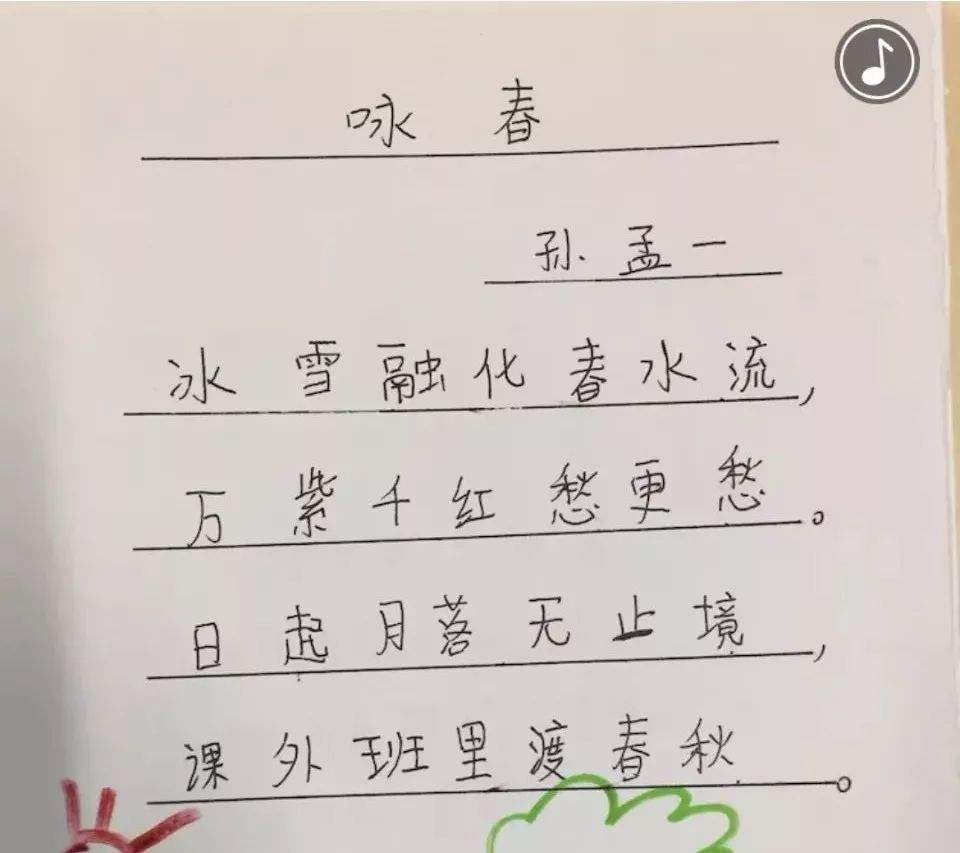 咏春
孙孟一
冰雪融化春水流，
万紫千红愁更愁。
日起月落无止境，
课外班里渡春秋。